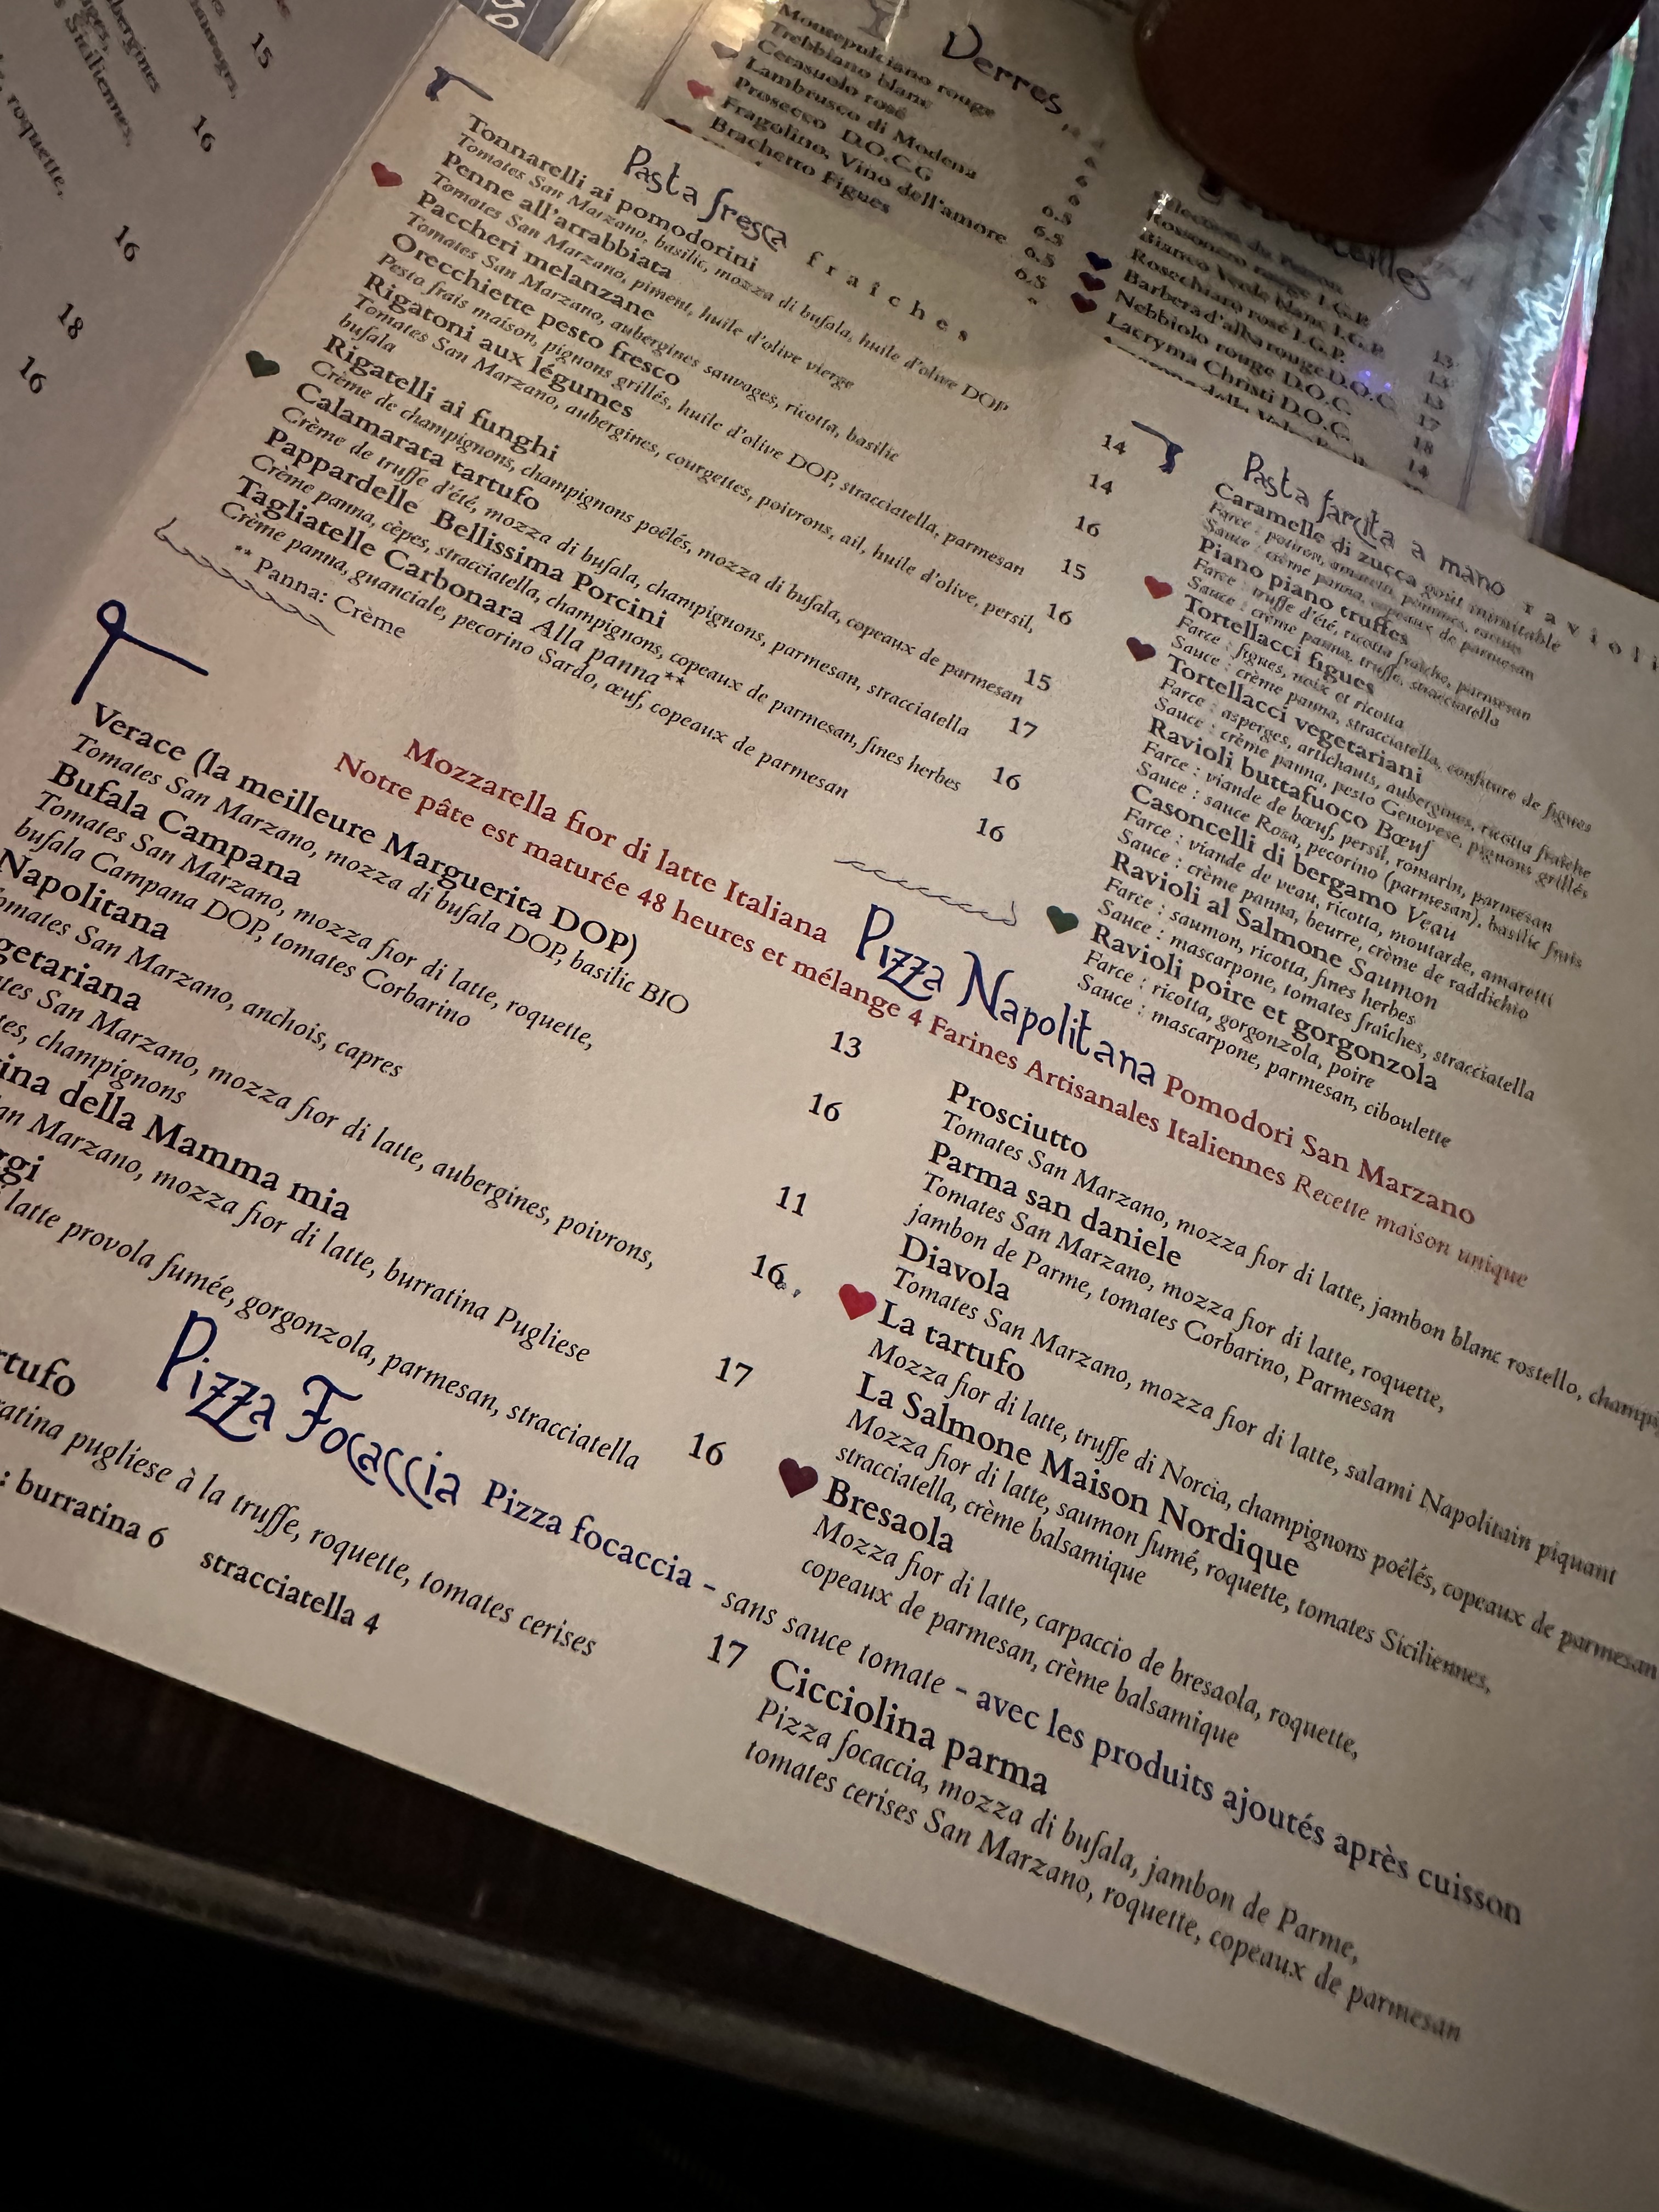 15
16
16
18
16
Siciliennes,
roquette,
Verres
Montepulciano rouge
Trebbiano blanc
Cerasuolo rosé
Lambrusco di Modena
Prosecco D.O.C.G
Fragolino, Vino dell'amore
Brachetto Figues
6
6
6
6.5
6.5
6.5
6.5
Bianco Verde blanc I.G.P.
Rosechiaro rosé I.G.P.
Barbera d'alba rouge D.O.C.
Nebbiolo rouge D.O.C
Lacryma Christi D.O.C.
13
13
13
17
18
14
Pasta fresca fraîches
Tonnarelli ai pomodorini
Tomates San Marzano, basilic, mozza di bufala, huile d'olive DOP 14
Penne all'arrabbiata
Tomates San Marzano, piment, huile d'olive vierge 14
Paccheri melanzane
Tomates San Marzano, aubergines sauvages, ricotta, basilic 16
Orecchiette pesto fresco
Pesto frais maison, pignons grillés, huile d'olive DOP, stracciatella, parmesan 15
Rigatoni aux légumes
Tomates San Marzano, aubergines, courgettes, poivrons, ail, huile d'olive, persil, 16
bufala
Rigatelli ai funghi
Crème de champignons, champignons poêlés, mozza di bufala, copeaux de parmesan 15
Calamarata tartufo
Crème de truffe d'été, mozza di bufala, champignons, parmesan, stracciatella 17
Pappardelle Bellissima Porcini
Crème panna, cèpes, stracciatella, champignons, copeaux de parmesan, fines herbes 16
Tagliatelle Carbonara Alla panna**
Crème panna, guanciale, pecorino Sardo, œuf, copeaux de parmesan 16
** Panna: Crème
Pasta farcita a mano ravioli
Caramelle di zucca goût inimitable
Farce : potiron, amaretti, pommes, raisins
Sauce : crème panna, copeaux de parmesan
Piano piano truffes
Farce : truffe d'été, ricotta fraîche, parmesan
Sauce : crème panna, truffe, stracciatella
Tortellacci figues
Farce : figues, noix et ricotta
Sauce : crème panna, stracciatella, confiture de figues
Tortellacci vegetariani
Farce : asperges, artichauts, aubergines, ricotta fraîche
Sauce : crème panna, pesto Genovese, pignons grillés
Ravioli buttafuoco Bœuf
Farce : viande de bœuf, persil, romarin, parmesan
Sauce : sauce Rosa, pecorino (parmesan), basilic frais
Casoncelli di bergamo Veau
Farce : viande de veau, ricotta, moutarde, amaretti
Sauce : crème panna, beurre, crème de raddichio
Ravioli al Salmone Saumon
Farce : saumon, ricotta, fines herbes
Sauce : mascarpone, tomates fraîches, stracciatella
Ravioli poire et gorgonzola
Farce : ricotta, gorgonzola, poire
Sauce : mascarpone, parmesan, ciboulette
Pizza Napolitana
Mozzarella fior di latte Italiana Pomodori San Marzano
Notre pâte est maturée 48 heures et mélange 4 Farines Artisanales Italiennes Recette maison unique
Verace (la meilleure Marguerita DOP) 13
Tomates San Marzano, mozza di bufala DOP, basilic BIO
Bufala Campana 16
Tomates San Marzano, mozza fior di latte, roquette,
bufala Campana DOP, tomates Corbarino
Napolitana 11
Tomates San Marzano, anchois, capres
getariana 16
tes San Marzano, mozza fior di latte, aubergines, poivrons,
tes, champignons
ina della Mamma mia 17
an Marzano, mozza fior di latte, burratina Pugliese
ggi 16
latte provola fumée, gorgonzola, parmesan, stracciatella
Prosciutto
Tomates San Marzano, mozza fior di latte, jambon blanc rostello, champi
Parma san daniele
Tomates San Marzano, mozza fior di latte, roquette,
jambon de Parme, tomates Corbarino, Parmesan
Diavola
Tomates San Marzano, mozza fior di latte, salami Napolitain piquant
La tartufo
Mozza fior di latte, truffe de Norcia, champignons poêlés, copeaux de parmesan
La Salmone Maison Nordique
Mozza fior di latte, saumon fumé, roquette, tomates Siciliennes,
stracciatella, crème balsamique
Bresaola
Mozza fior di latte, carpaccio de bresaola, roquette,
copeaux de parmesan, crème balsamique
Pizza Focaccia Pizza focaccia - sans sauce tomate - avec les produits ajoutés après cuisson
rtufo 17
ratina pugliese à la truffe, roquette, tomates cerises
: burratina 6 stracciatella 4
Cicciolina parma
Pizza focaccia, mozza di bufala, jambon de Parme,
tomates cerises San Marzano, roquette, copeaux de parmesan